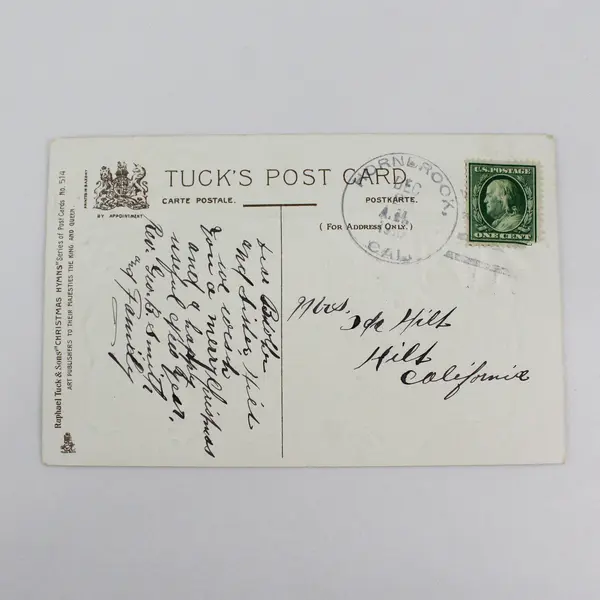 TUCK'S POST CARD.
CARTE POSTALE.
POSTKARTE.
( FOR ADDRESS ONLY. )
BY APPOINTMENT.
Raphael Tuck & Sons' "CHRISTMAS HYMNS" Series of Post Cards No. 514
ART PUBLISHERS TO THEIR MAJESTIES THE KING AND QUEEN.
HORNBROOK,
DEC
CAL.
U.S. POSTAGE
ONE CENT
and Sister Hilt
we wish
you a merry Christmas
and a happy
useful New Year.
Rev. Geo. B. Smith
and Family
Mrs. Hilt
Hilt
California